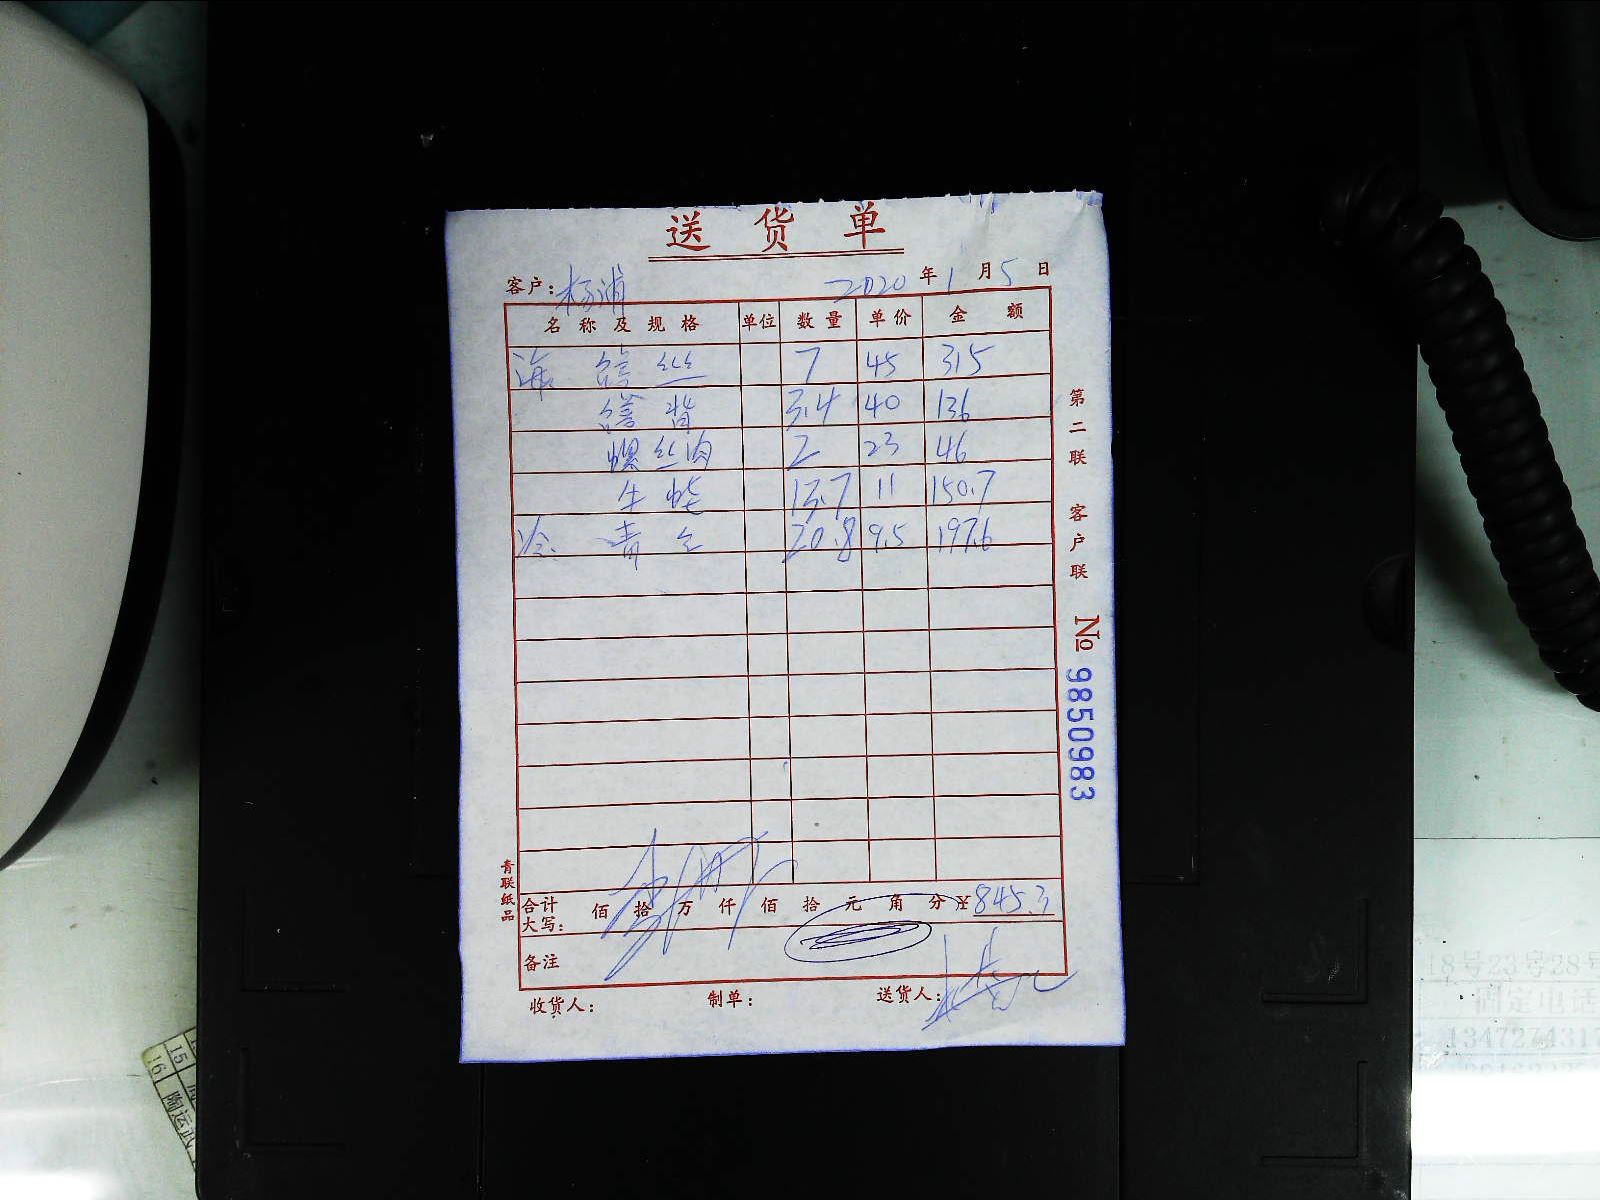 送 货 单
客户: 杨浦 2020 年 1 月 5 日
名称及规格 单位 数量 单价 金额
海 鳝丝 7 45 315
鳝背 3.4 40 136
螺丝肉 2 23 46
牛蛙 13.7 11 150.7
冷 青 20.8 9.5 197.6
合计大写: 佰 拾 万 仟 佰 拾 元 角 分 ¥ 845.3
备注
收货人: 制单: 送货人:
第二联 客户联
№ 9850983
青联纸品
15
16 陶运武
18号23号28号
固定电话